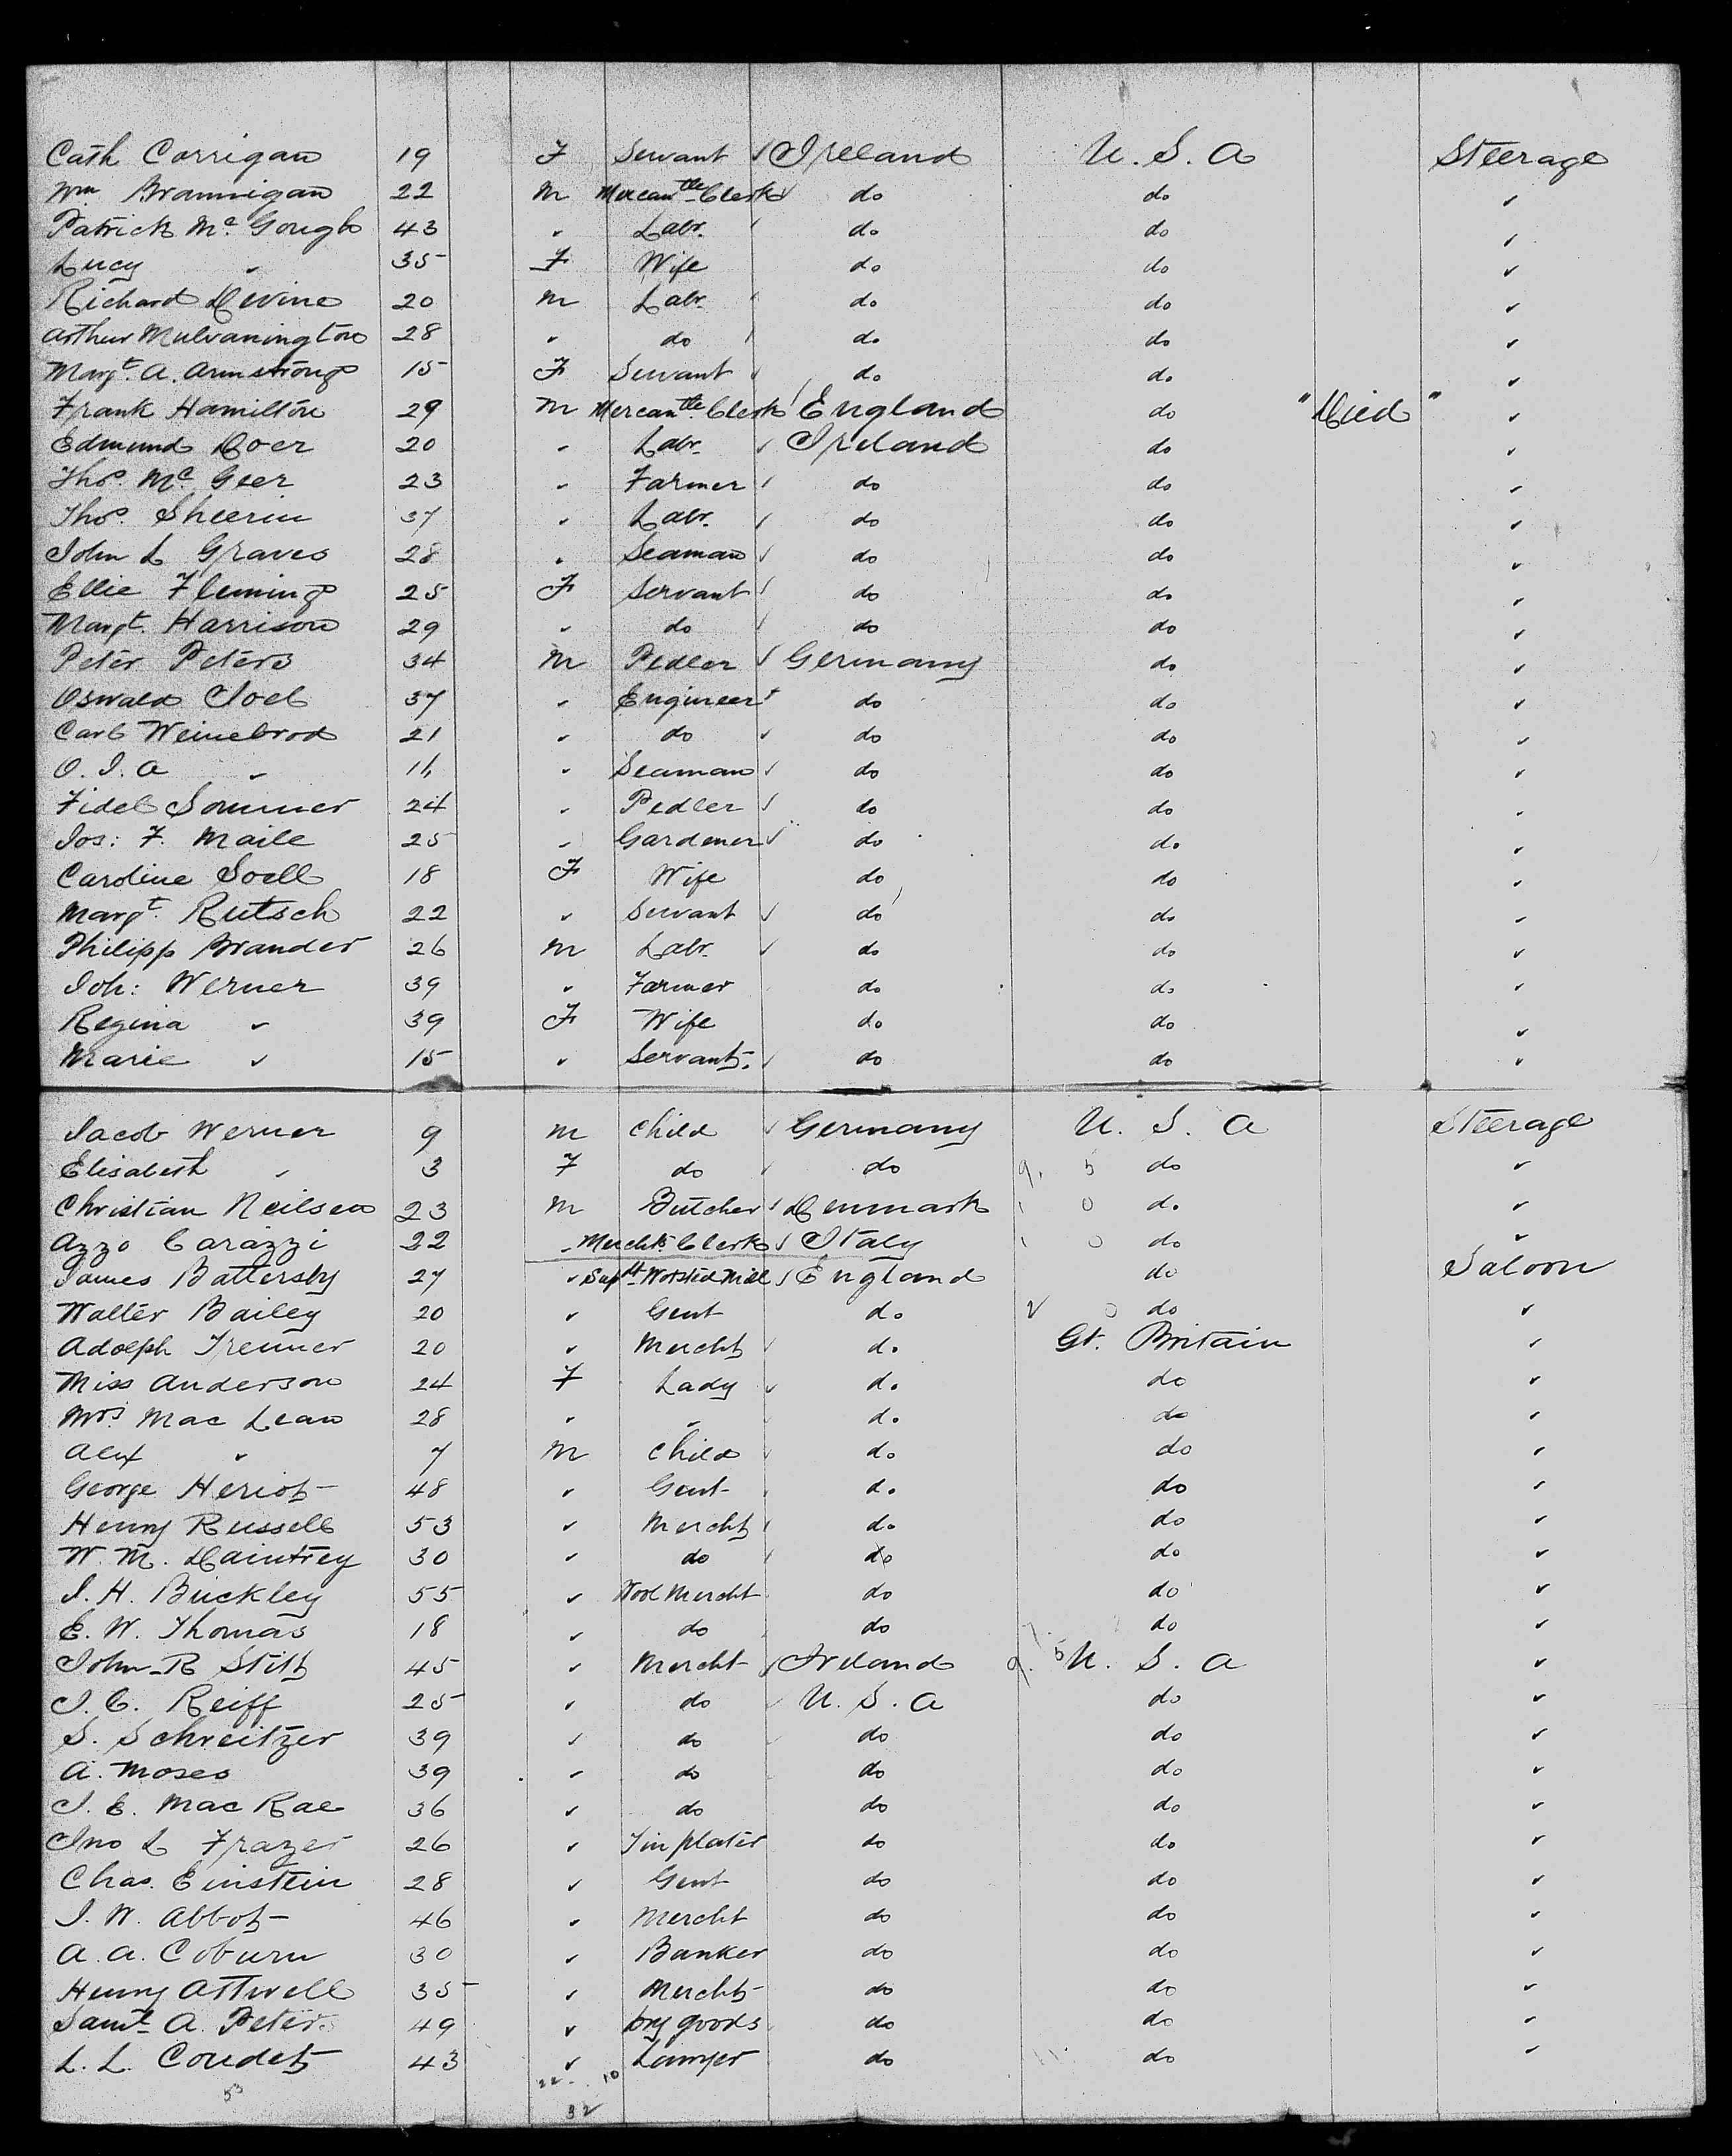 Cath Corrigan 19 F Servant Ireland U. S. A Steerage
Wm Brannigan 22 M Mercantle Clerk do do "
Patrick Mc Gough 43 " Labr. do do "
Lucy " 35 F Wife do do "
Richard Devine 20 M Labr. do do "
Arthur Mulvanington 28 " do do do "
Margt. A. Armstrong 15 F Servant do do "
Frank Hamilton 29 M Mercantle Clerk England do "Died" "
Edmund Doer 20 " Labr. Ireland do "
Thos. Mc Geer 23 " Farmer do do "
Thos. Sheerin 37 " Labr. do do "
John L Graves 28 " Seaman do do "
Ellie Fleming 25 F Servant do do "
Margt. Harrison 29 " do do do "
Peter Peters 34 M Pedler Germany do "
Oswald Joel 37 " Engineer do do "
Carl Weinebrod 21 " do do do "
O. I. A " " Seaman do do "
Fidel Sommer 24 " Pedler do do "
Jos: F. Maile 25 " Gardener do do "
Caroline Soell 18 F Wife do do "
Margt. Rutsch 22 " Servant do do "
Philipp Brander 26 M Labr. do do "
Joh: Werner 39 " Farmer do do "
Regina " 39 F Wife do do "
Marie " 15 " Servant do do "
Jacob Werner 9 M Child Germany U. S. A Steerage
Elisabeth " 3 F do do do "
Christian Neilsen 23 M Butcher Denmark do "
Azzo Carazzi 22 " Mercht Clerk Italy do "
James Battersby 27 " Supt Worsted Mill England do Saloon
Walter Bailey 20 " Gent do do "
Adolph Trenner 20 " Mercht do Gt. Britain "
Miss Anderson 24 F Lady do do "
Mrs. Mac Lean 28 " " do do "
Alex " 7 M Child do do "
George Heriot 48 " Gent do do "
Henry Russell 53 " Mercht do do "
W. M. Daintrey 30 " do do do "
J. H. Buckley 55 " Wool Mercht do do "
E. W. Thomas 18 " do do do "
John R Stitt 45 " Mercht Ireland U. S. A "
J. C. Reiff 25 " do U. S. A do "
S. Schreitzer 39 " do do do "
A. Moses 39 " do do do "
J. E. Mac Rae 36 " do do do "
Jno L Frazer 26 " Tin plater do do "
Chas. Einstein 28 " Gent do do "
J. W. Abbot 46 " Mercht do do "
A. A. Coburn 30 " Banker do do "
Henry Attwell 35 " Mercht do do "
Saml A. Peters 49 " Dry goods do do "
L. L. Coudet 43 " Lawyer do do "
22 10
53 32